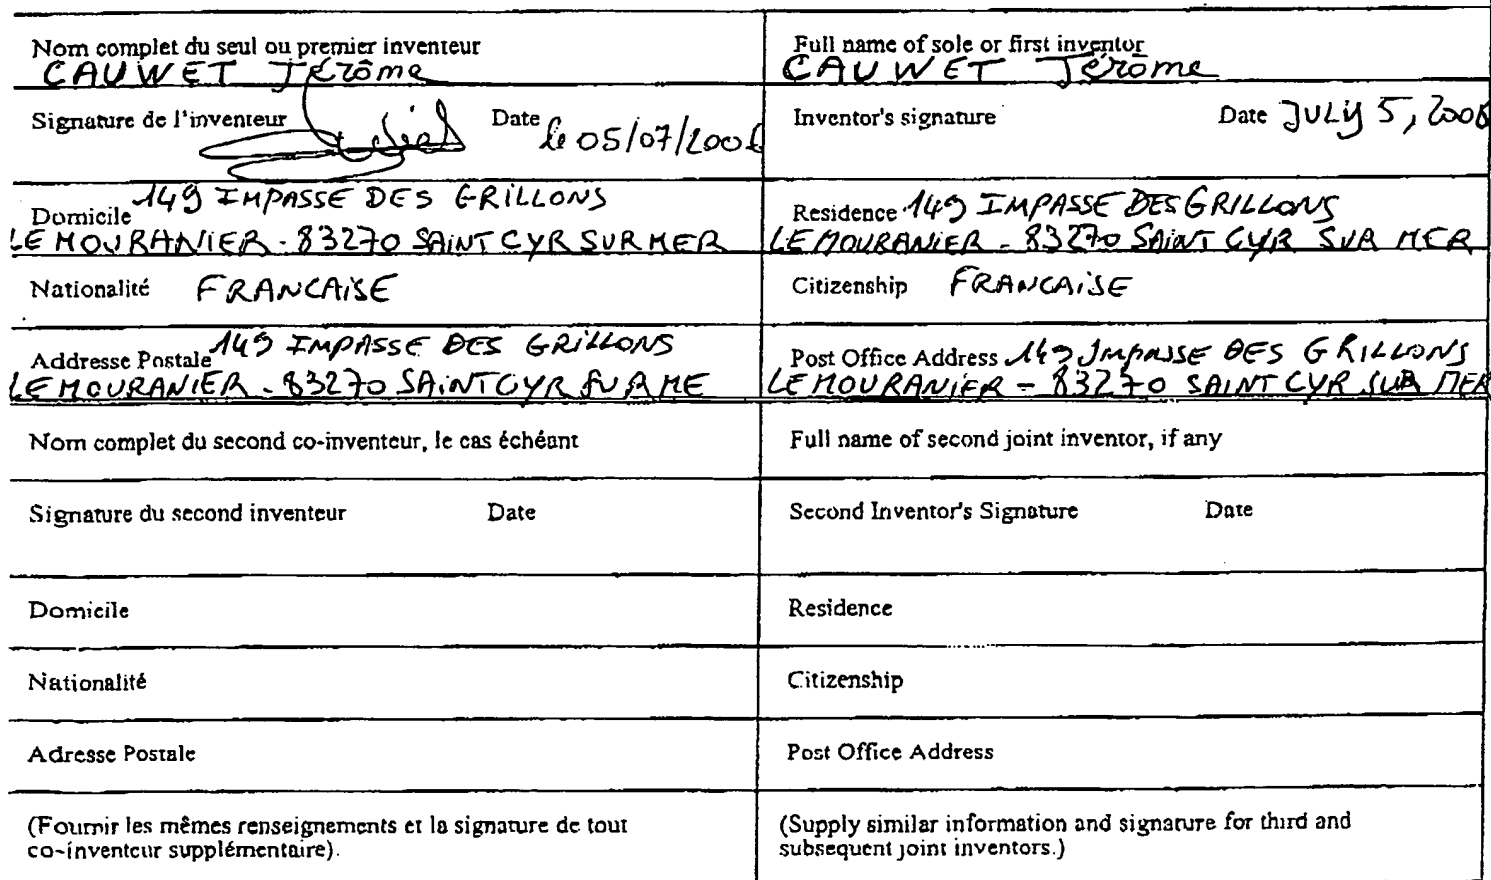 Nom complet du seul ou premier inventeur
CAUWET Jérôme
Full name of sole or first inventor
CAUWET Jérôme
Signature de l'inventeur
Date le 05/07/2006
Inventor's signature
Date JULY 5, 2006
Domicile 149 IMPASSE DES GRILLONS
LE MOURANIER - 83270 SAINT CYR SUR MER
Residence 149 IMPASSE DES GRILLONS
LE MOURANIER - 83270 SAINT CYR SUR MER
Nationalité FRANCAISE
Citizenship FRANCAISE
Addresse Postale 149 IMPASSE DES GRILLONS
LE MOURANIER - 83270 SAINT CYR SUR ME
Post Office Address 149 IMPASSE DES GRILLONS
LE MOURANIER - 83270 SAINT CYR SUR MER
Nom complet du second co-inventeur, le cas échéant
Full name of second joint inventor, if any
Signature du second inventeur Date
Second Inventor's Signature Date
Domicile
Residence
Nationalité
Citizenship
Adresse Postale
Post Office Address
(Fournir les mêmes renseignements et la signature de tout
co-inventeur supplémentaire).
(Supply similar information and signature for third and
subsequent joint inventors.)